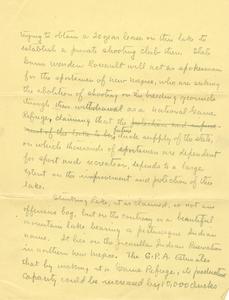 trying to obtain a 20 year lease on this lake to
establish a private shooting club there. State
Game Warden Rouault will act as spokesman
for the sportsmen of New Mexico, who are asking
the abolition of shooting on the breeding grounds
through its withdrawal as a National Game
Refuge, claiming that the
future duck supply of the state,
on which thousands of sportsmen are dependent
for sport and recreation, depends to a large
extent on the improvement and protection of this
lake.
Stinking Lake, it is claimed, is not an
offensive bog, but on the contrary is a beautiful
mountain lake bearing a picturesque Indian
name. It lies on the Jicarilla Indian Reservation
in northern New Mexico. The G.P.A. estimates
that by making it a Game Refuge, its
capacity could be increased by 150,000 ducks